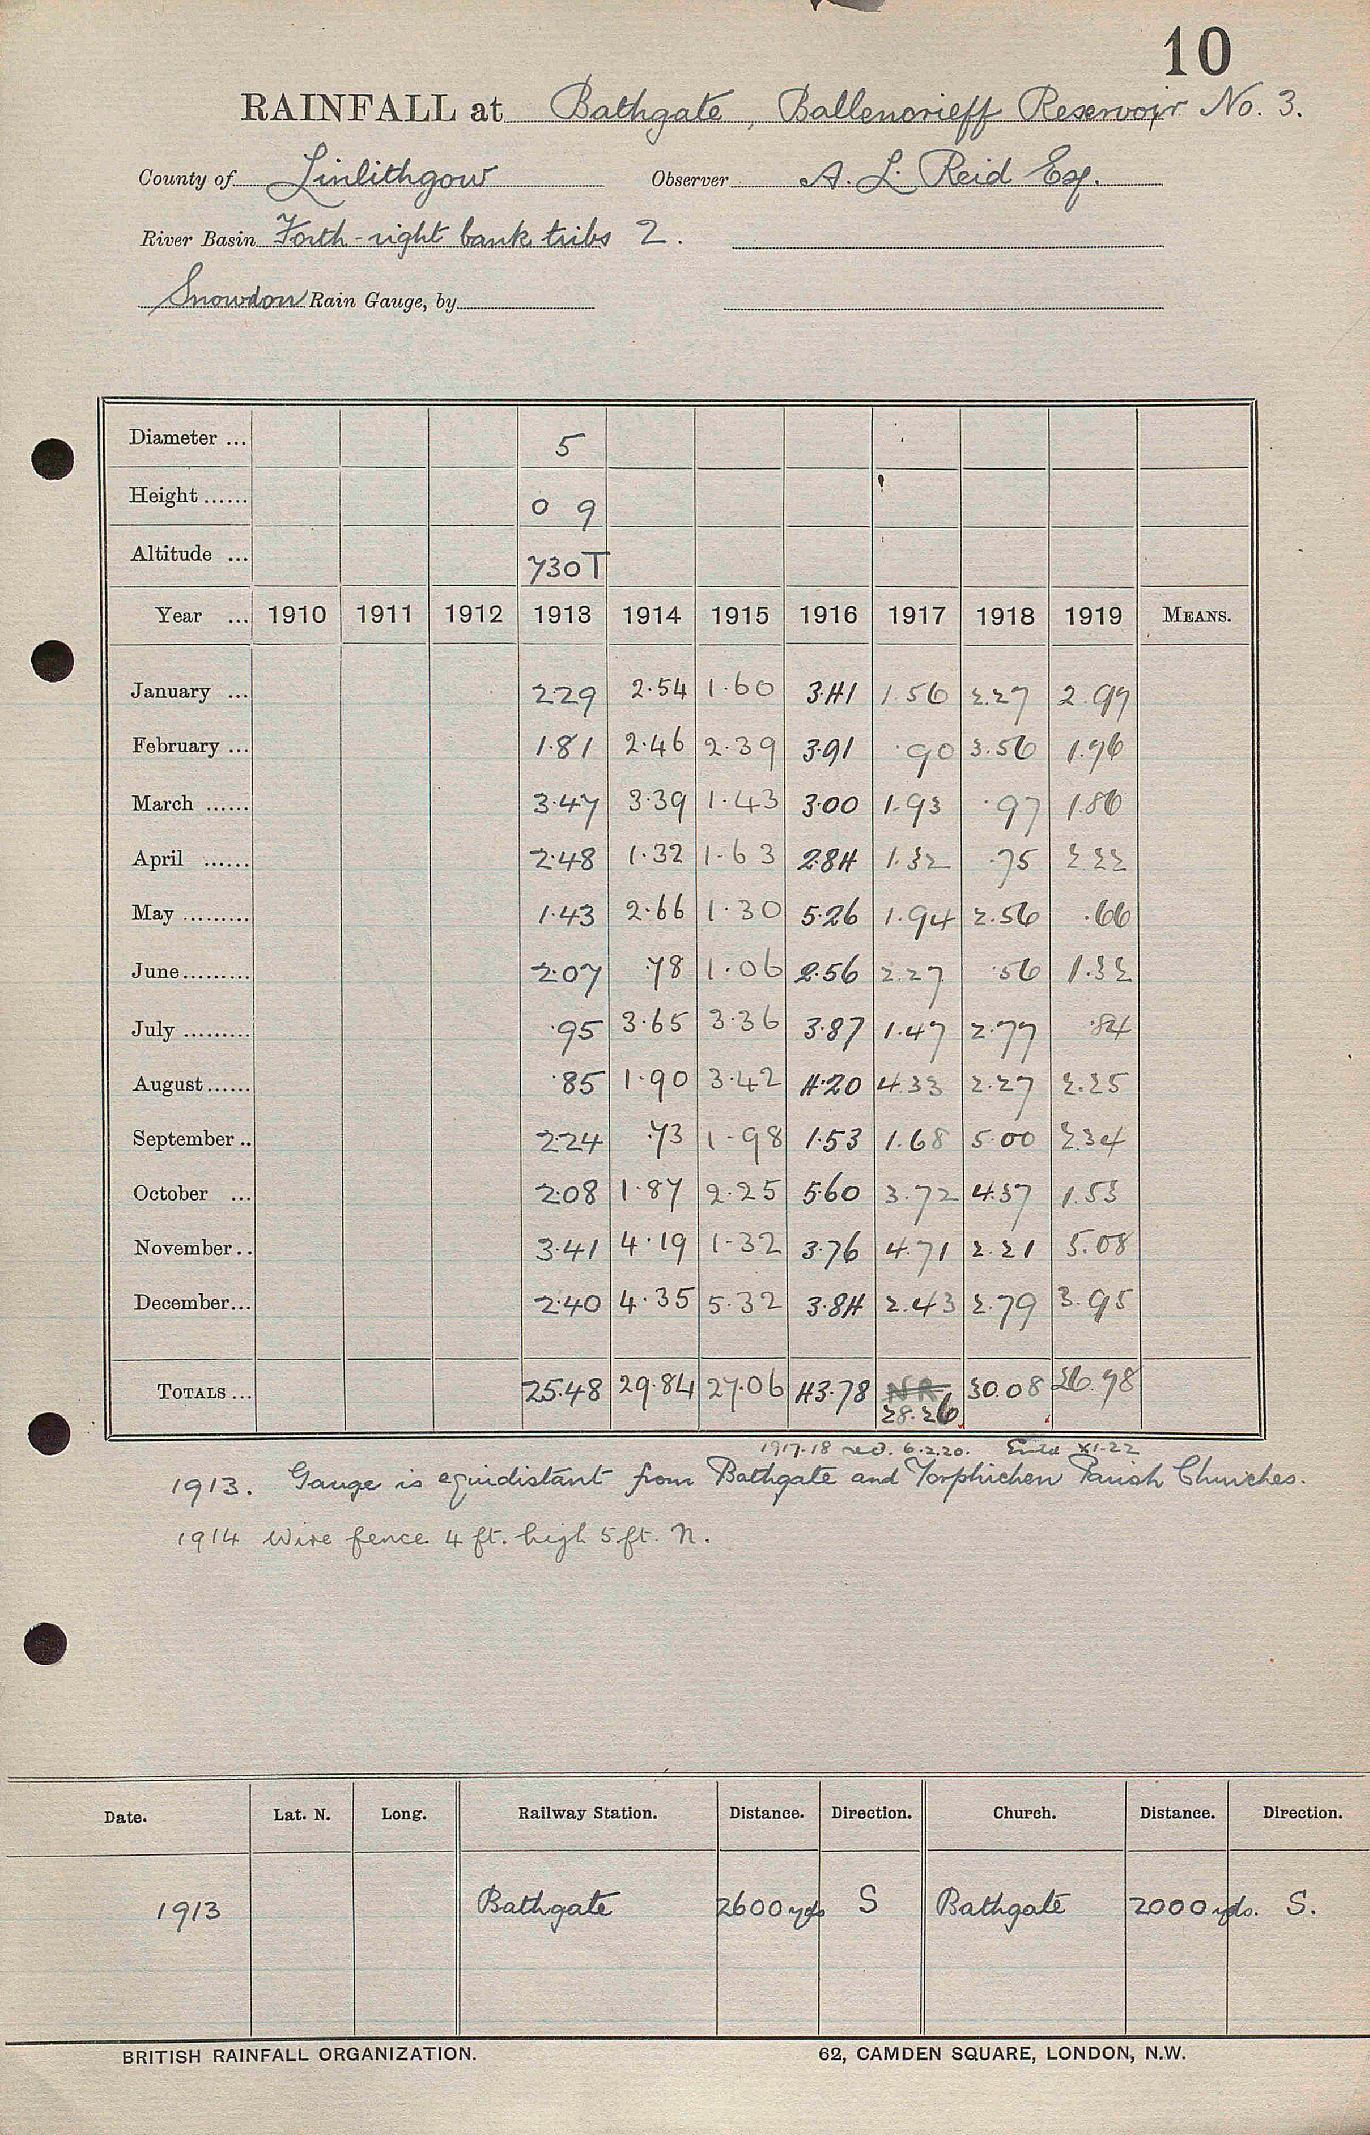 10
RAINFALL at Bathgate, Ballencrieff Reservoir No. 3.
County of Linlithgow Observer A. L. Reid Esq.
River Basin Forth - right bank tribs 2.
Snowdon Rain Gauge, by
Diameter ... 5
Height ...... 0 9
Altitude ... 730T
Year ... 1910 1911 1912 1913 1914 1915 1916 1917 1918 1919 MEANS.
January ... 2.29 2.54 1.60 3.41 1.56 2.27 2.97
February ... 1.81 2.46 2.39 3.91 .90 3.56 1.96
March ...... 3.47 3.39 1.43 3.00 1.93 .97 1.86
April ...... 2.48 1.32 1.63 2.84 1.32 .75 2.22
May ......... 1.43 2.66 1.30 5.26 1.94 2.56 .66
June ......... 2.07 .78 1.06 2.56 2.27 .56 1.32
July ......... .95 3.65 3.36 3.87 1.47 2.77 .84
August ...... .85 1.90 3.42 4.20 4.33 2.27 2.25
September .. 2.24 .73 1.98 1.53 1.68 5.00 2.34
October ... 2.08 1.87 2.25 5.60 3.72 4.37 1.53
November .. 3.41 4.19 1.32 3.76 4.71 2.21 5.08
December ... 2.40 4.35 5.32 3.84 2.43 2.79 3.95
TOTALS ... 25.48 29.84 27.06 43.78 NR 30.08 26.98
28.26
1917-18 recd. 6.2.20. XI-22
1913. Gauge is equidistant from Bathgate and Torphichen Parish Churches.
1914 Wire fence 4 ft. high 5 ft. N.
Date. Lat. N. Long. Railway Station. Distance. Direction. Church. Distance. Direction.
1913 Bathgate 2600 yds S Bathgate 2000 yds. S.
BRITISH RAINFALL ORGANIZATION. 62, CAMDEN SQUARE, LONDON, N.W.